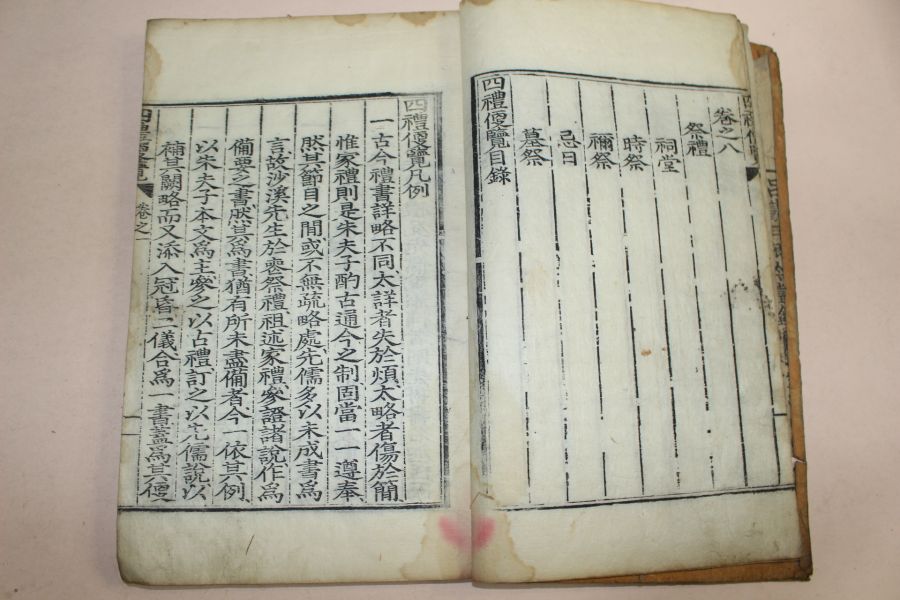 卷之八
祭禮
祠堂
時祭
禰祭
忌日
墓祭
四禮便覽目錄
四禮便覽凡例
一古今禮書詳略不同太詳者失於煩太略者傷於簡
惟家禮則是朱夫子酌古通今之制固當一一遵奉
然其節目之間或不無疏略處先儒多以未成書爲
言故沙溪先生於喪祭禮祖述家禮參證諸說作爲
備要之書然其爲書猶有所未盡備者今一依其例
以朱夫子本文爲主參之以古禮訂之以先儒說以
補其闕略而又添入冠昏二儀合爲一書蓋爲其便
四禮便覽
卷之